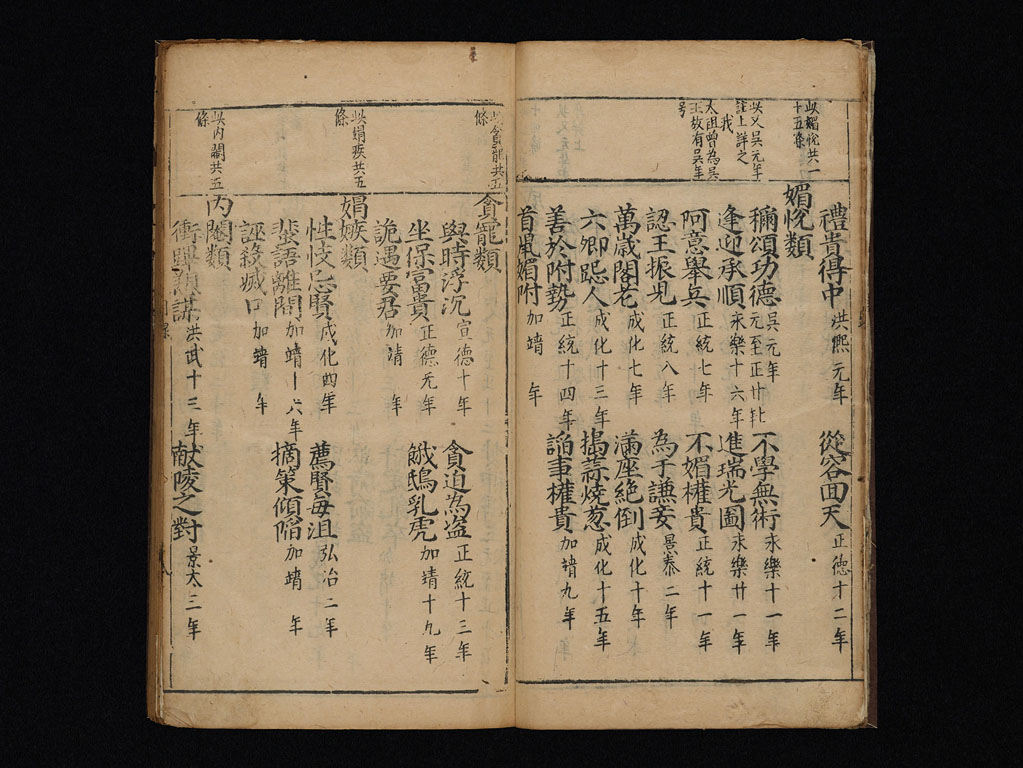 此媚悅共一
十五條
此乂吳元年
註上詳之
我
太祖曾為吳
王故有吳年
号
禮貴得中 洪熙元年 從容回天 正德十二年
媚悅類
稱頌功德 吳元年 元至正廿七年 不學無術 永樂十一年
逢迎承順 永樂十六年 進瑞光圖 永樂廿一年
阿意舉兵 正統七年 不媚權貴 正統十一年
認王振児 正統八年 為子謙妾 景泰二年
萬歲閣老 成化七年 滿座絕倒 成化十年
六卿跽人 成化十三年 搗蒜燒葱 成化十五年
善於附勢 正統十四年 諂事權貴 加靖九年
首媚附 加靖 年
此貪寵共五
條
此娼疾共五
條
此內閣共五
條
貪寵類
與時浮沉 宣德十年 貪迫為盗 正統十三年
坐保富貴 正德元年 餓鴟乳虎 加靖十九年
詭遇要君 加靖 年
娼嫉類
性忮忌賢 成化四年 薦賢每沮 弘治二年
蜚語離間 加靖十六年 摘策傾陷 加靖 年
誣殺滅口 加靖 年
內閣類
洪武十三年 献陵之對 景太三年